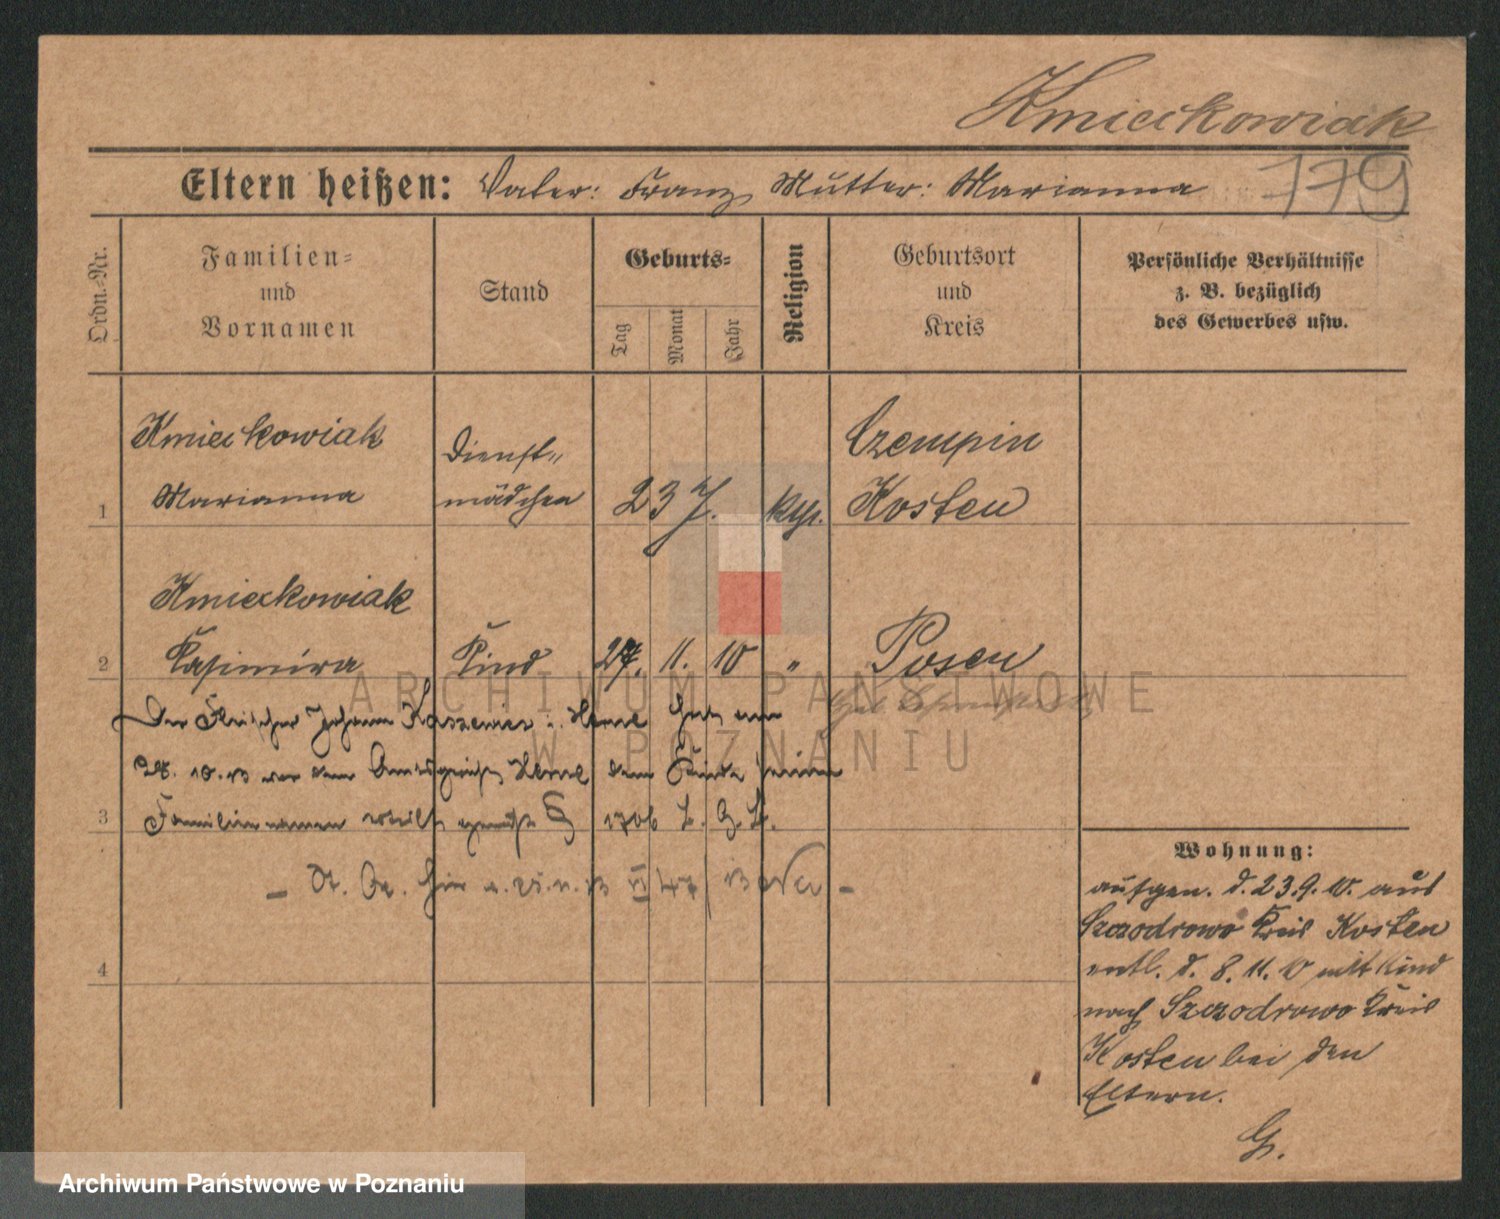 Kmieckowiak
179
Eltern heißen: Vater: Franz Mutter: Marianna
Ordn.-Nr.
Familien-
und
Vornamen
Stand
Geburts-
Tag
Monat
Jahr
Religion
Geburtsort
und
Kreis
Persönliche Verhältnisse
z. B. bezüglich
des Gewerbes usw.
1
Kmieckowiak
Marianna
Dienst-
mädchen
23 7.
kth.
Czempin
Kosten
2
Kmieckowiak
Kasimira
Kind
27. 11. 10
"
Posen
Der Fleischer Johann in Herne hat am
28. 10. 13 vor dem Amtsgericht Herne dem Kinde seinen
3
Familiennamen erteilt gemäß § 1706 B. G. B.
4
Wohnung:
aufgen. d. 23.9.10. aus
Szczodrowo Kreis Kosten
entl. d. 8. 11. 10 mit Kind
nach Szczodrowo Kreis
Kosten bei den
Eltern.
G.
ARCHIWUM PAŃSTWOWE
W POZNANIU
Archiwum Państwowe w Poznaniu